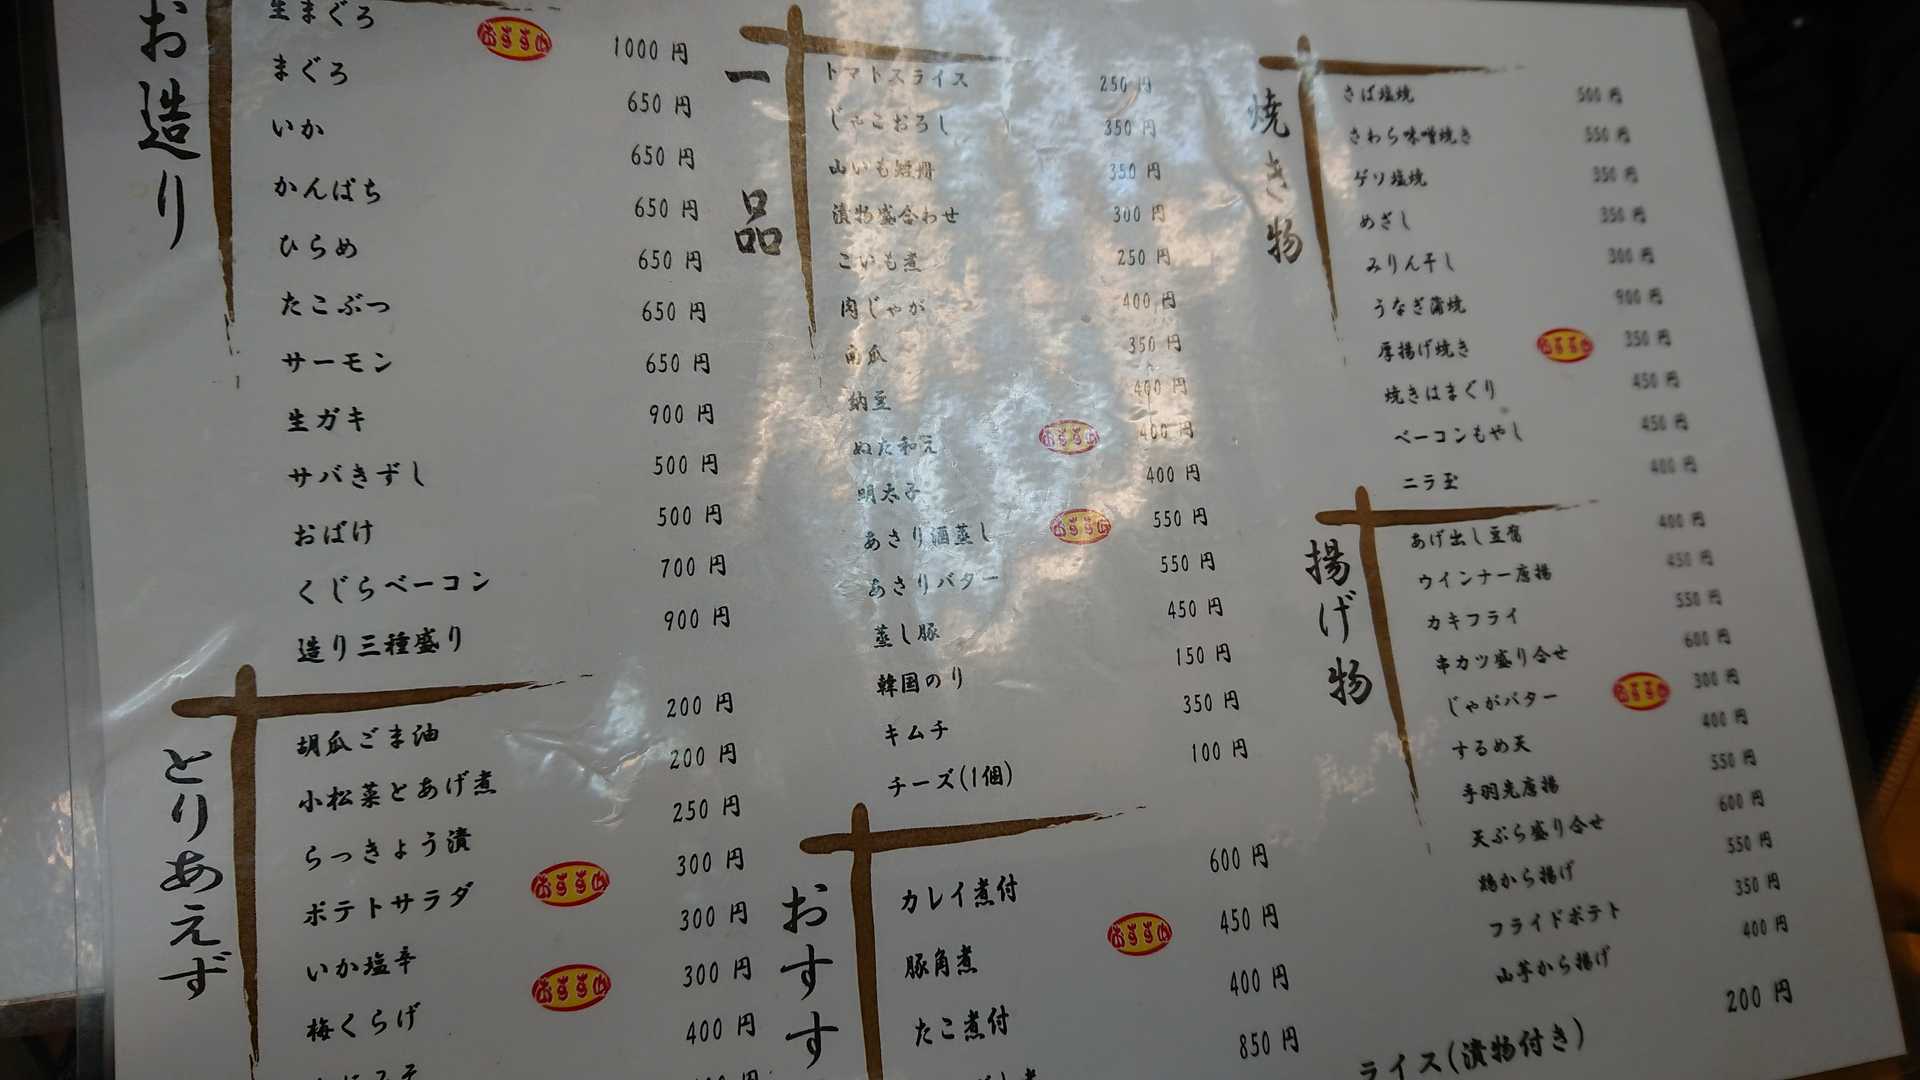 お造り
生まぐろ おすすめ 1000 円
まぐろ 650 円
いか 650 円
かんぱち 650 円
ひらめ 650 円
たこぶつ 650 円
サーモン 650 円
生ガキ 900 円
サバきずし 500 円
おばけ 500 円
くじらベーコン 700 円
造り三種盛り 900 円
とりあえず
胡瓜ごま油 200 円
小松菜とあげ煮 200 円
らっきょう漬 250 円
ポテトサラダ おすすめ 300 円
いか塩辛 300 円
梅くらげ おすすめ 300 円
400 円
一品
トマトスライス 250 円
じゃこおろし 350 円
山いも短冊 350 円
漬物盛合わせ 300 円
こいも煮 250 円
肉じゃが 400 円
南瓜 350 円
納豆 400 円
ぬた和え おすすめ 400 円
明太子 400 円
あさり酒蒸し おすすめ 550 円
あさりバター 550 円
蒸し豚 450 円
韓国のり 150 円
キムチ 350 円
チーズ(1個) 100 円
おすす
カレイ煮付 600 円
豚角煮 おすすめ 450 円
たこ煮付 400 円
850 円
焼き物
さば塩焼 500 円
さわら味噌焼き 550 円
ゲソ塩焼 350 円
めざし 350 円
みりん干し 300 円
うなぎ蒲焼 900 円
厚揚げ焼き おすすめ 350 円
焼きはまぐり 450 円
ベーコンもやし 450 円
ニラ玉 400 円
揚げ物
あげ出し豆腐 400 円
ウインナー唐揚 450 円
カキフライ 550 円
串カツ盛り合せ 600 円
じゃがバター おすすめ 300 円
するめ天 400 円
手羽先唐揚 550 円
天ぷら盛り合せ 600 円
鶏から揚げ 550 円
フライドポテト 350 円
山芋から揚げ 400 円
ライス(漬物付き) 200 円